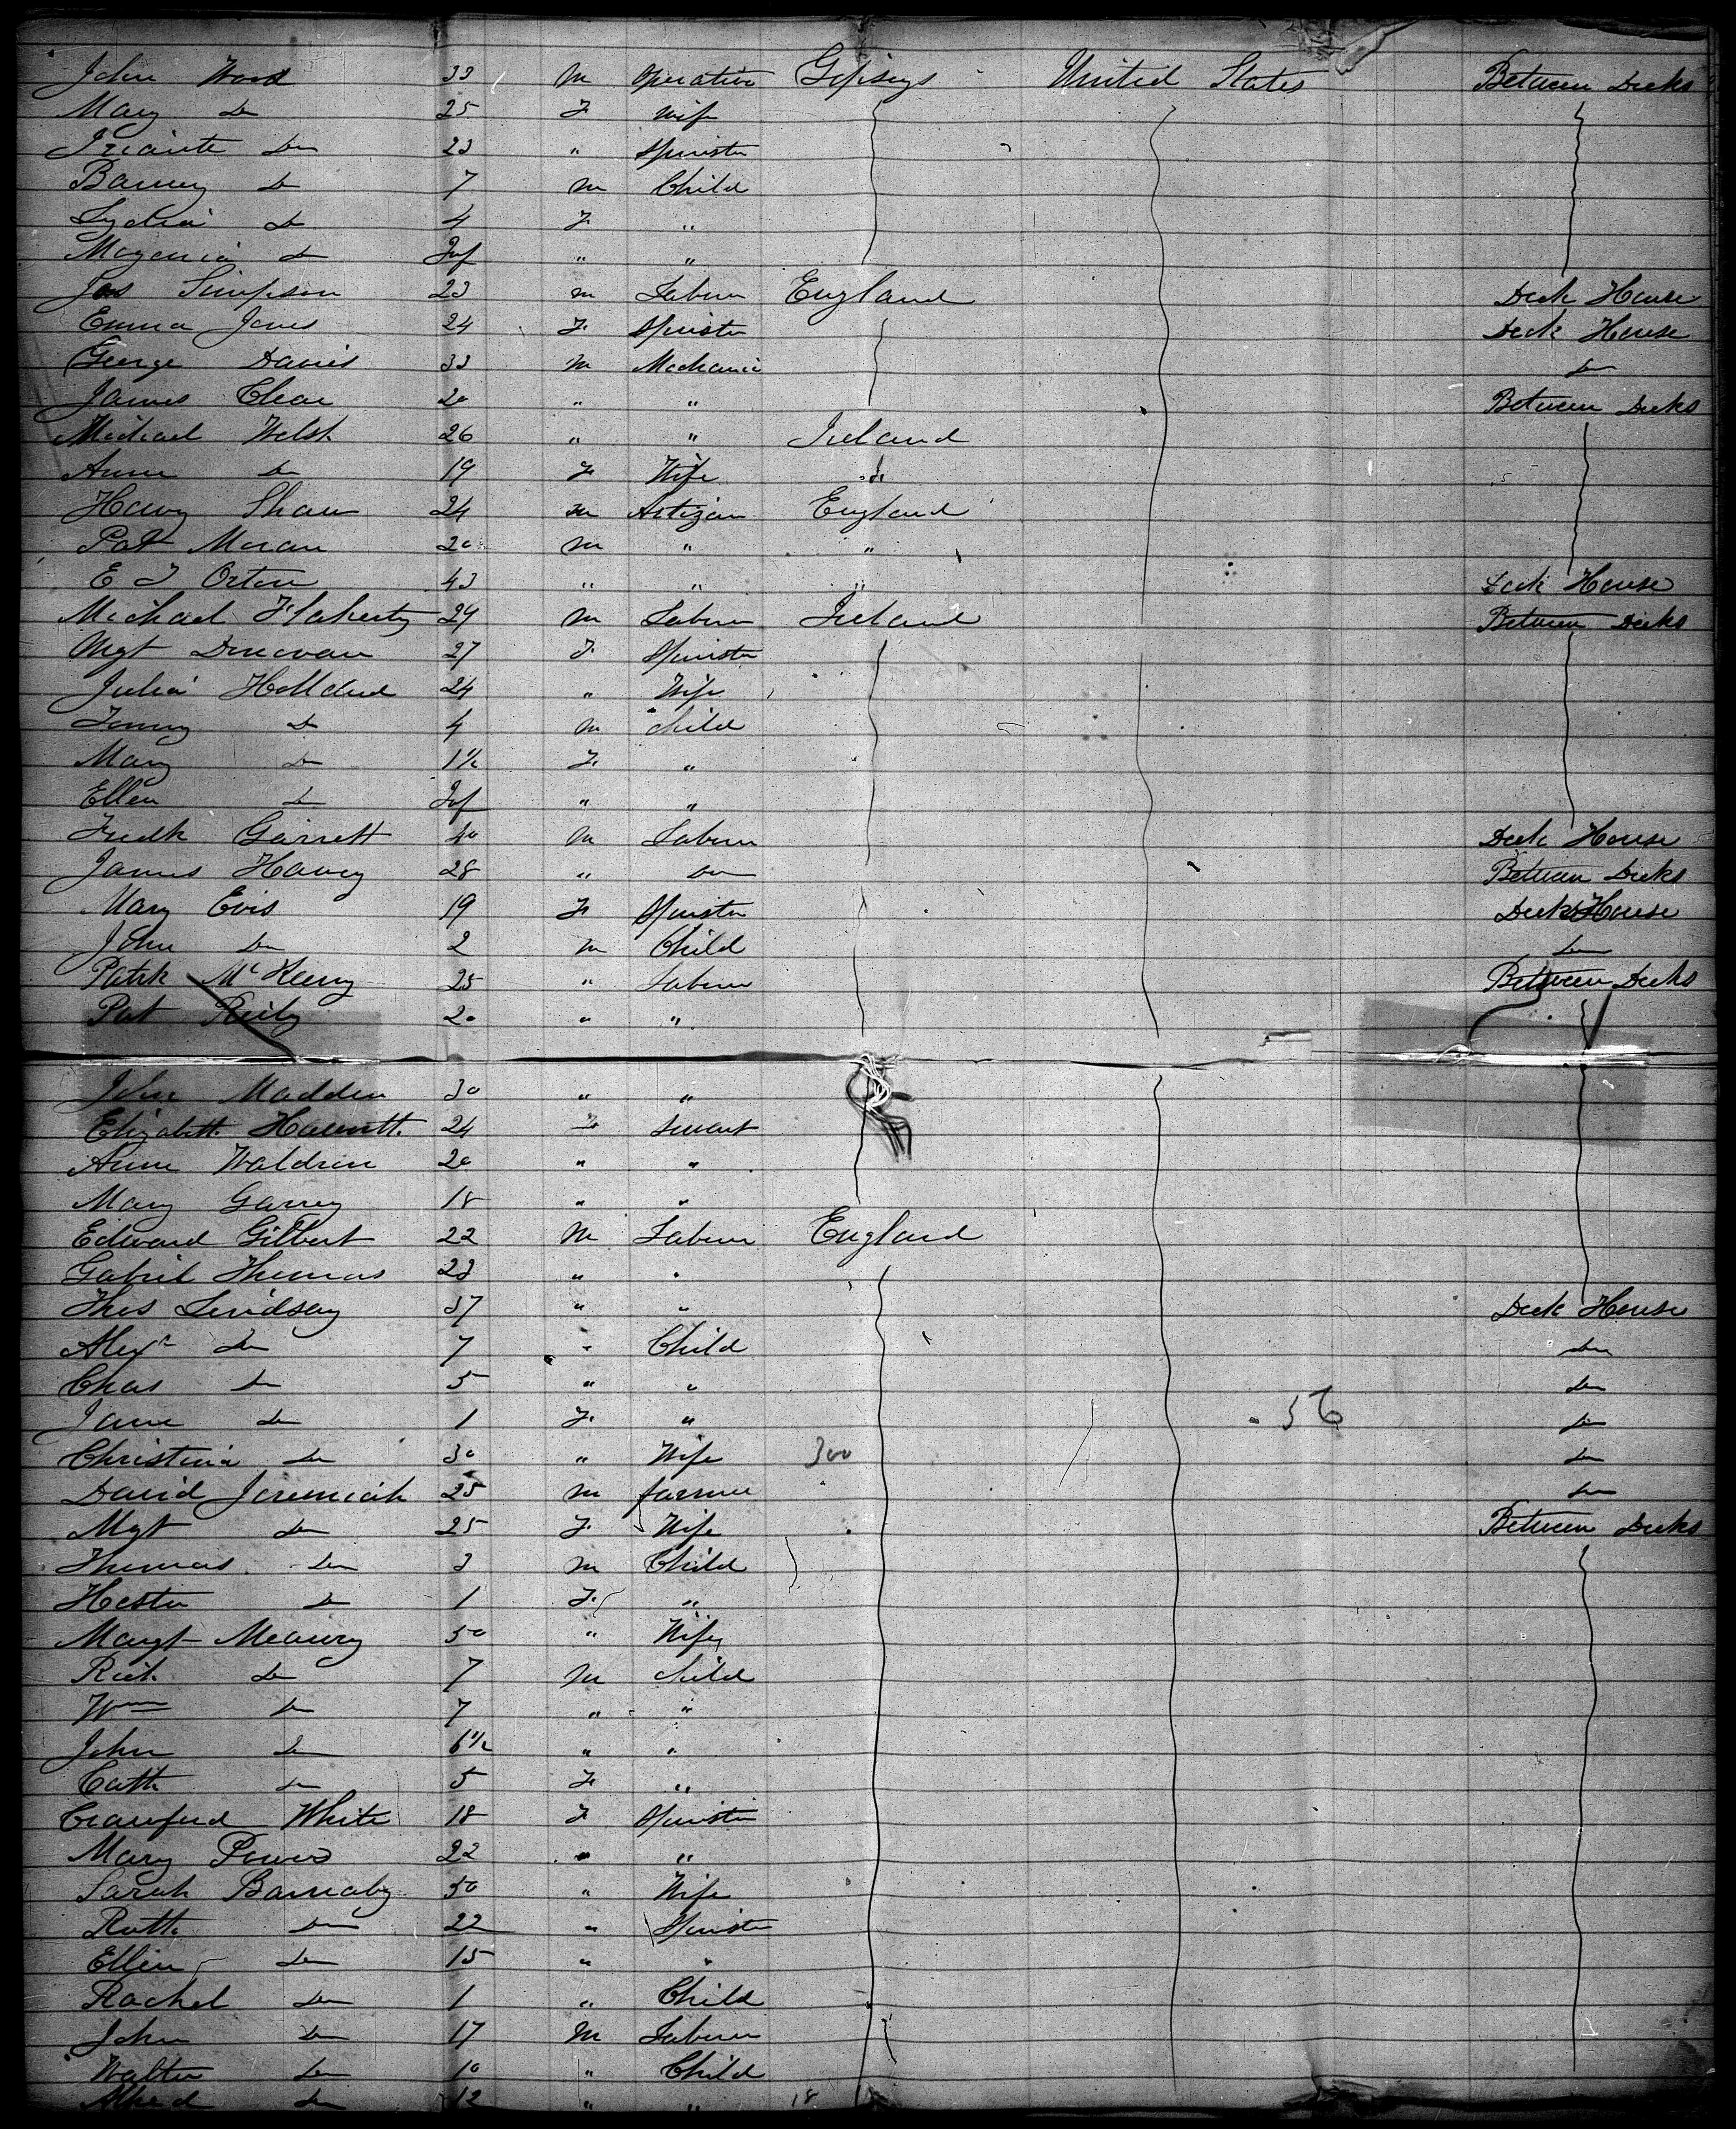 John Wood 33 m Operative Gipseys United States Between Decks
Mary Do 25 F Wife
23 " Spinster
Barney Do 7 m Child
Lydia Do 4 F "
Do Inf " "
Jas Simpson 23 m Laborer England Deck House
Emma Jones 24 F Spinster Deck House
George Davies 33 m Mechanic Do
James Clear 20 " " Between Decks
Michael Welsh 26 " " Ireland
Anne Do 19 F Wife Do
Harry Shaw 24 m Artizan England
Pat Moran 20 m " "
E J Orton 43 " " " Deck House
Michael Flaherty 24 m Laborer Ireland Between Decks
Mgt Donovan 27 F Spinster
Julia 24 " Wife
Tommy Do 4 m Child
Mary Do 1½ F "
Ellen Do Inf " "
Fredk Garrett 40 m Laborer Deck House
James Harvey 28 " Do Between Decks
Mary Evis 19 F Spinster Deck House
John Do 2 m Child Do
Patrk 25 " Laborer Between Decks
Pat Reily 20 " "
John Madden 30 " "
Elizabeth 24 F Servant
Anne Waldron 20 " "
Mary Garvey 18 " "
Edward Gilbert 22 m Laborer England
Gabriel Thomas 23 " "
Thos Lindsay 37 " " Deck House
Alexr Do 7 " Child Do
Chas Do 5 " " Do
Jane Do 1 F " 56 Do
Christina Do 30 " Wife 300 Do
David Jeremiah 25 m farmer Do
Mgt Do 25 F Wife Between Decks
Thomas Do 3 m Child
Hester Do 1 F "
Margt 50 " Wife
Rich Do 7 m Child
Wm Do 7 " "
John Do 6½ " "
Cath Do 5 F "
Crawford White 18 F Spinster
Mary Power 22 " "
Sarah Barnaby 50 " Wife
Ruth Do 22 " Spinster
Ellen Do 15 " "
Rachel Do 1 " Child
John Do 17 m Laborer
Walter Do 10 " Child
Alfred Do 12 " " 18